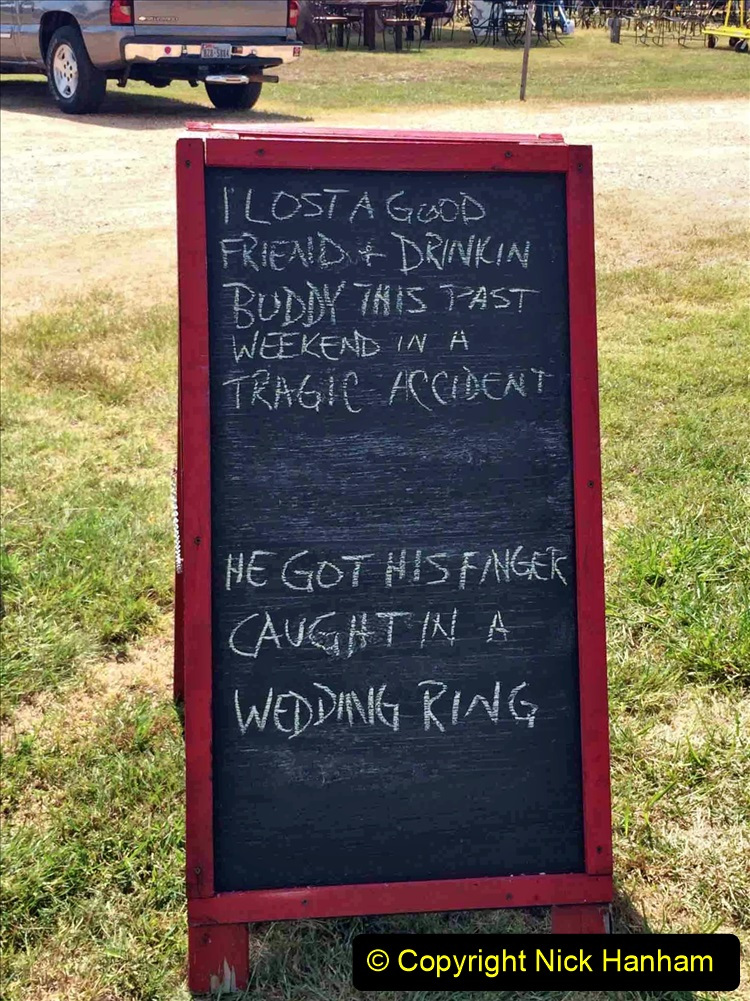 I LOST A GOOD
FRIEND + DRINKIN
BUDDY THIS PAST
WEEKEND IN A
TRAGIC ACCIDENT
HE GOT HIS FINGER
CAUGHT IN A
WEDDING RING
© Copyright Nick Hanham